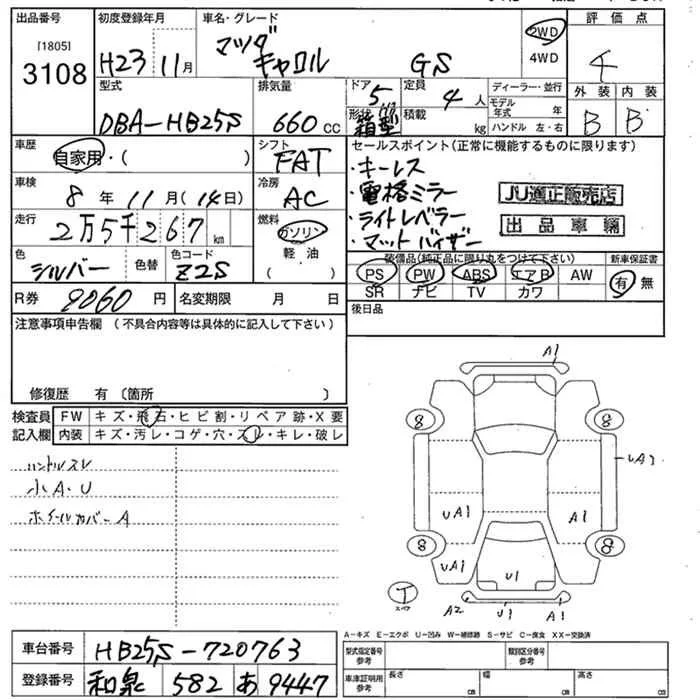 出品番号
[1805]
3108
初度登録年月
H23 11月
車名・グレード
マツダ
キャロル GS
2WD
4WD
評価点
4
外装 内装
B B
型式
DBA-HB25S
排気量
660 cc
ドア
5
形状
箱型
定員
4人
積載
kg
ディーラー・並行
モデル年式 年
ハンドル 左・右
車歴
自家用・( )
シフト
FAT
車検
8年 11月 (14日)
冷房
AC
走行
2万5千267 km
燃料
ガソリン
軽油
( )
色
シルバー
色替
色コード
Z2S
R券 9060 円
名変期限 月 日
セールスポイント(正常に機能するものに限ります)
・キーレス
・電格ミラー
・ライトレベラー
・マットバイザー
JU適正販売店
出品車輛
装備品(純正品に限り丸をつけて下さい)
新車保証書
PS PW ABS エアB AW
有 無
SR ナビ TV カワ
後日品
注意事項申告欄 (不具合内容等は具体的に記入して下さい)
修復歴 有 〔箇所 〕
検査員
記入欄
FW キズ・飛石・ヒビ割・リペア跡・X要
内装 キズ・汚レ・コゲ・穴・スレ・キレ・破レ
ハンドルスレ
小A・U
ホイールカバーA
A1
8 8
UA1 A1
8 8
UA1
U1
T
スペア
A2 U1 A1
A-キズ E-エクボ U-凹み W-補修跡 S-サビ C-腐食 XX-交換済
車台番号 HB25S-720763
登録番号 和泉 582 あ 9447
型式指定番号
参考
類別区分番号
参考
車庫証明用
参考
長さ cm
幅 cm
高さ cm